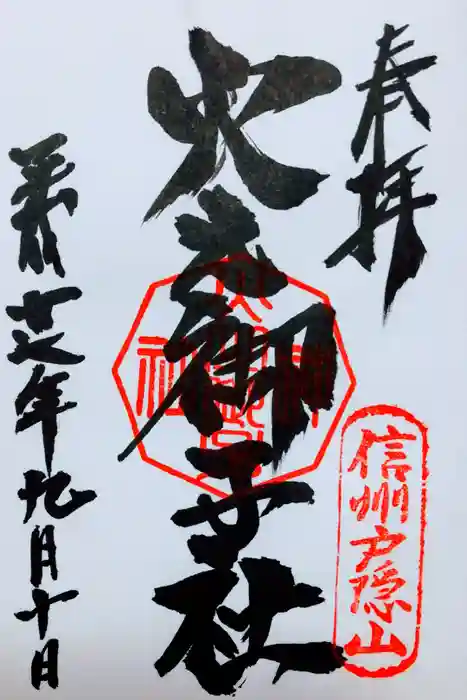 奉拝
信州戸隠山
火之御子社
平成廿七年九月十日